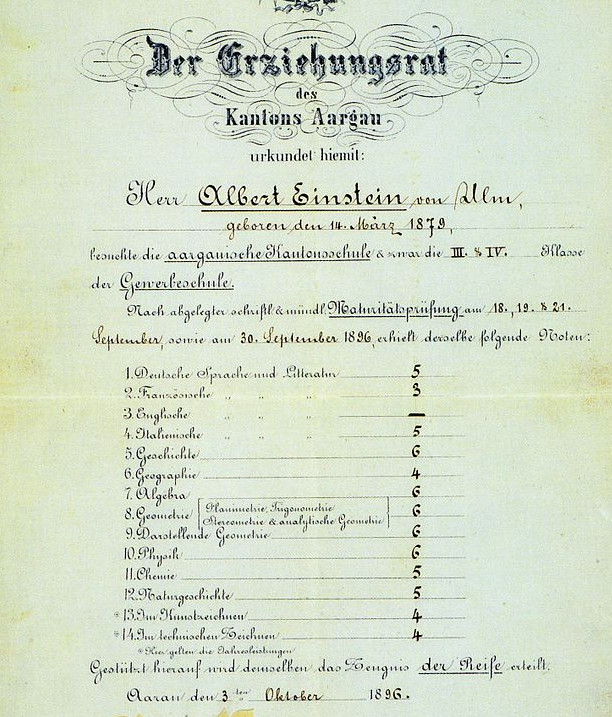 Der Erziehungsrat
des
Kantons Aargau
urkundet hiemit:
Herr Albert Einstein von Ulm,
geboren den 14. März 1879,
besuchte die aargauische Kantonsschule & zwar die III. & IV. Klasse
der Gewerbeschule.
Nach abgelegter schriftl. & mündl. Maturitätsprüfung am 18., 19. & 21.
September, sowie am 30. September 1896, erhielt derselbe folgende Noten:
1. Deutsche Sprache und Litteratur 5
2. Französische „ „ „ 3
3. Englische „ „ „ —
4. Italienische „ „ „ 5
5. Geschichte 6
6. Geographie 4
7. Algebra 6
8. Geometrie [Planimetrie, Trigonometrie Stereometrie & analytische Geometrie] 6
9. Darstellende Geometrie 6
10. Physik 6
11. Chemie 5
12. Naturgeschichte 5
* 13. Im Kunstzeichnen 4
* 14. Im technischen Zeichnen 4
* Hier gelten die Jahresleistungen
Gestützt hierauf wird demselben das Zeugnis der Reife erteilt.
Aarau den 3ten Oktober 1896.